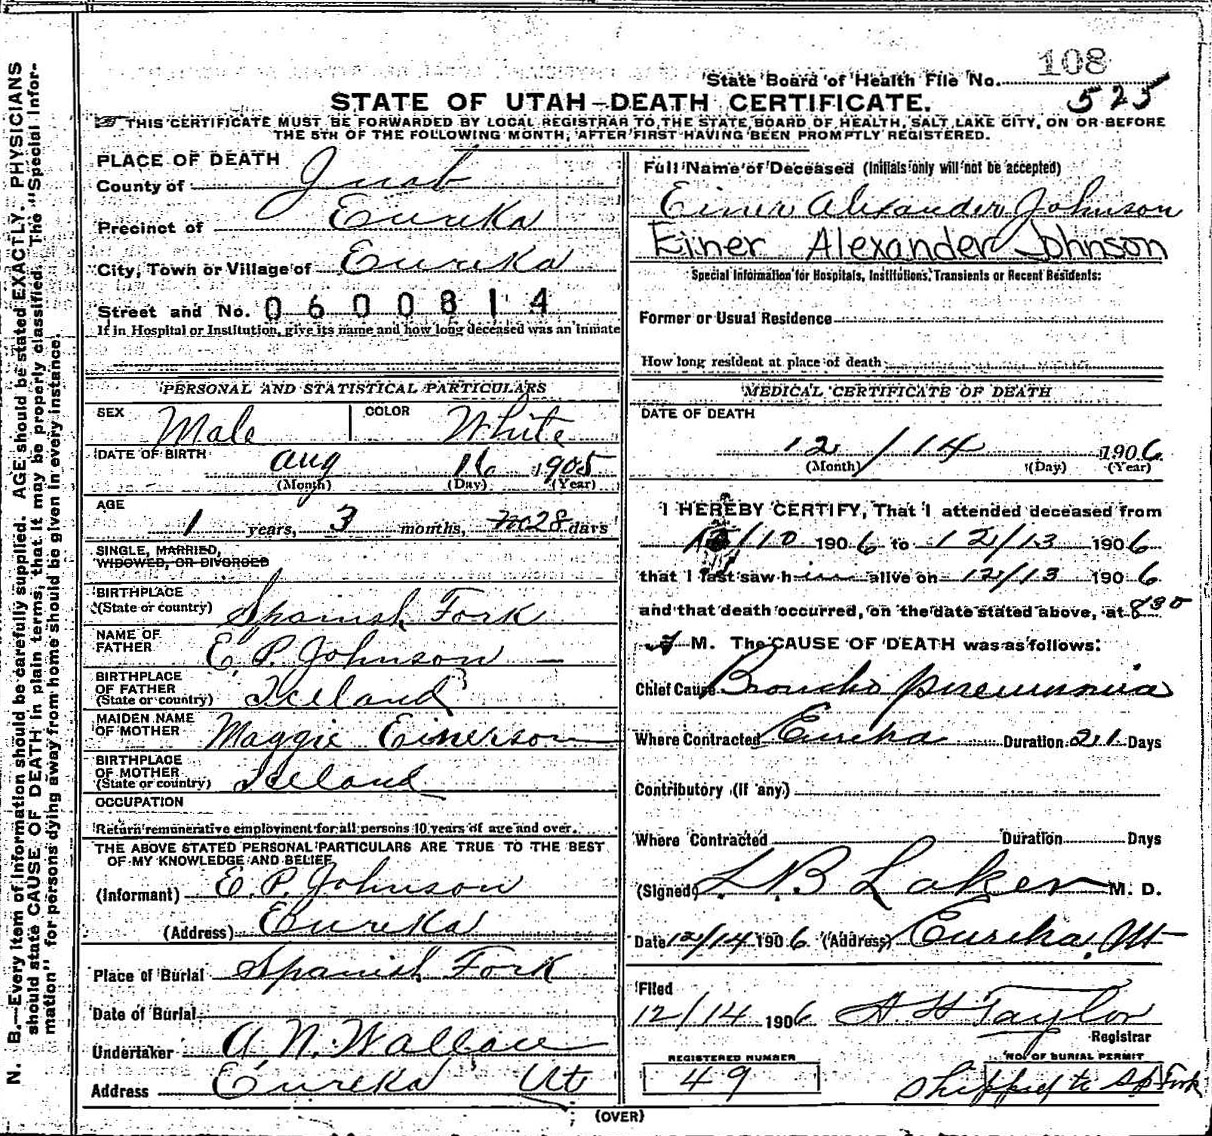 108
State Board of Health File No. 525
STATE OF UTAH—DEATH CERTIFICATE.
THIS CERTIFICATE MUST BE FORWARDED BY LOCAL REGISTRAR TO THE STATE BOARD OF HEALTH, SALT LAKE CITY, ON OR BEFORE
THE 5TH OF THE FOLLOWING MONTH, AFTER FIRST HAVING BEEN PROMPTLY REGISTERED.
N. B.—Every item of information should be carefully supplied. AGE should be stated EXACTLY. PHYSICIANS
should state CAUSE OF DEATH in plain terms, that it may be properly classified. The "Special Infor-
mation" for persons dying away from home should be given in every instance.
PLACE OF DEATH
County of Juab
Precinct of Eureka
City, Town or Village of Eureka
Street and No. 0600814
If in Hospital or Institution, give its name and how long deceased was an inmate
PERSONAL AND STATISTICAL PARTICULARS
SEX Male COLOR White
DATE OF BIRTH Aug 16 1905
(Month) (Day) (Year)
AGE
1 years, 3 months, 28 days
SINGLE, MARRIED,
WIDOWED, OR DIVORCED
BIRTHPLACE
(State or country) Spanish Fork
NAME OF
FATHER E. P. Johnson
BIRTHPLACE
OF FATHER
(State or country) Iceland
MAIDEN NAME
OF MOTHER Maggie Einerson
BIRTHPLACE
OF MOTHER
(State or country) Iceland
OCCUPATION
Return remunerative employment for all persons 10 years of age and over.
THE ABOVE STATED PERSONAL PARTICULARS ARE TRUE TO THE BEST
OF MY KNOWLEDGE AND BELIEF
(Informant) E. P. Johnson
(Address) Eureka
Place of Burial Spanish Fork
Date of Burial
Undertaker A. N. Wallace
Address Eureka Ut
Full Name of Deceased (Initials only will not be accepted)
Einer Alexander Johnson
Einer Alexander Johnson
Special Information for Hospitals, Institutions, Transients or Recent Residents:
Former or Usual Residence
How long resident at place of death
MEDICAL CERTIFICATE OF DEATH
DATE OF DEATH
12 / 14 1906
(Month) (Day) (Year)
I HEREBY CERTIFY, That I attended deceased from
/10 1906 to 12/13 1906
that I last saw him alive on 12/13 1906
and that death occurred, on the date stated above, at 830
M. The CAUSE OF DEATH was as follows:
Chief Cause Broncho pneumonia
Where Contracted Eureka Duration 21 Days
Contributory (if any)
Where Contracted Duration Days
(Signed) L. B. Laker M. D.
Date 12/14 1906 (Address) Eureka, Ut
Filed
12/14 1906 A H Taylor
Registrar
REGISTERED NUMBER
49
NO. OF BURIAL PERMIT
Shipped to Sp Fork
(OVER)